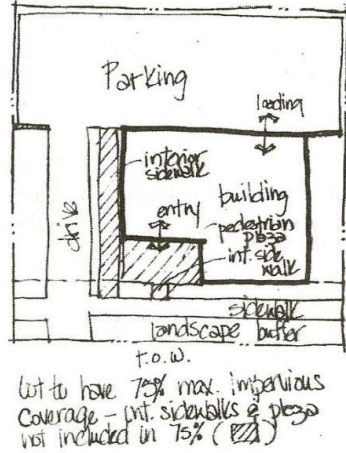 Parking
loading
interior
sidewalk
building
entry
pedestrian
plaza
int. side
walk
drive
sidewalk
landscape buffer
r.o.w.
lot to have 75% max. impervious
coverage - int. sidewalks & plaza
not included in 75% ( )